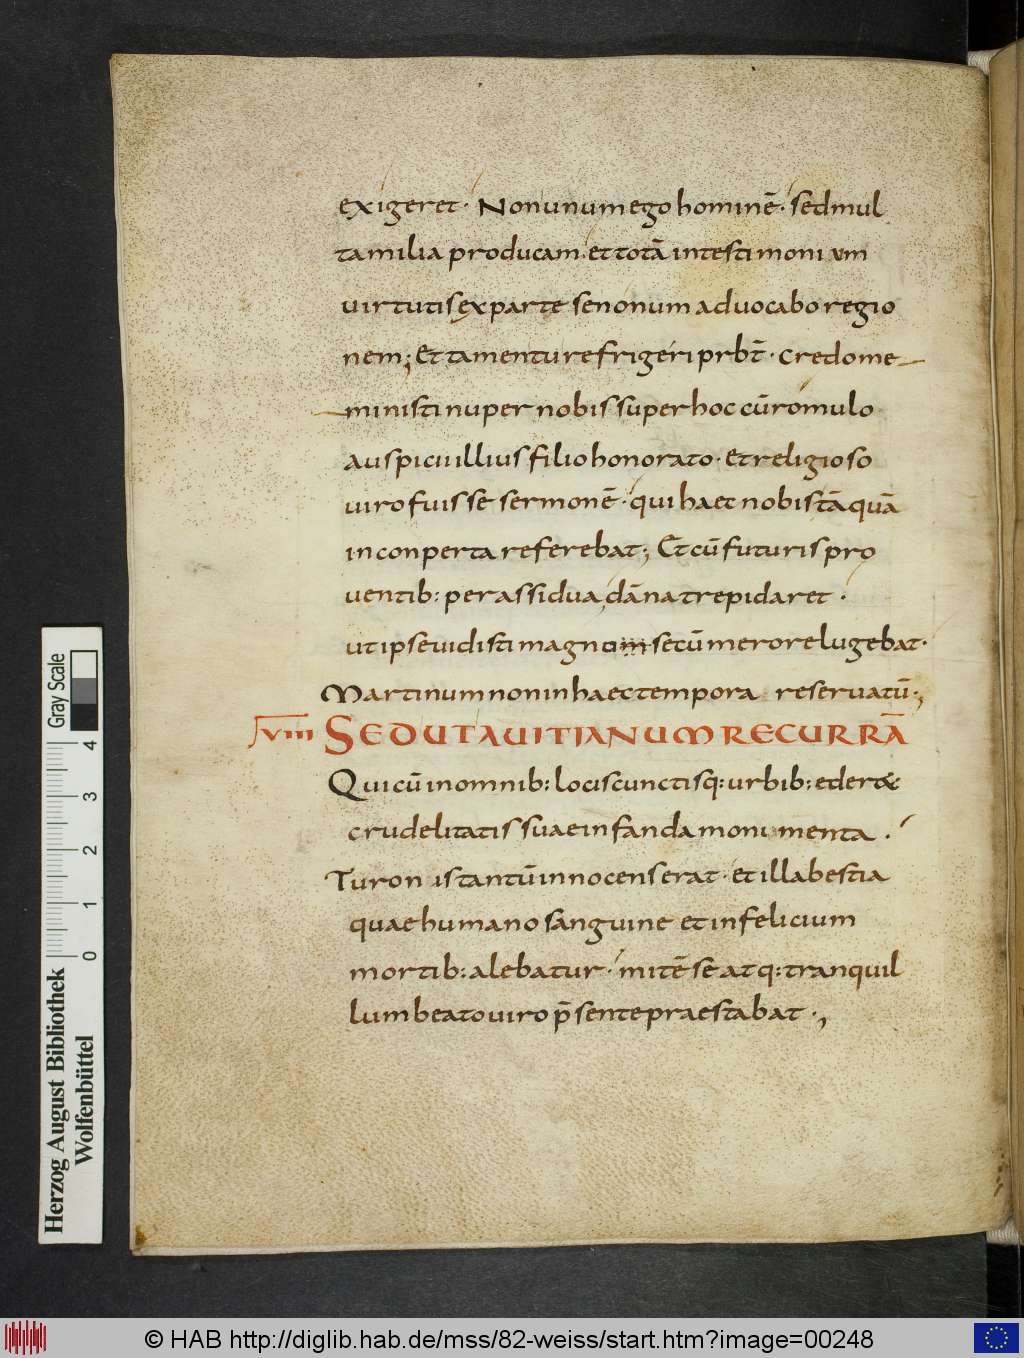 exigeret · Non unum ego hominē · sed mul
ta milia producam · et totā in testimonium
virtutis ex parte senonum advocabo regio
nem ; Et tamen tu refrigeri prbt̄ · credo me
ministi nuper nobis super hoc cū romulo
auspici illius filio honorato · et religioso
viro fuisse sermonē · qui haec nobis tā quā
inconperta referebat ; Et cū futuris pro
ventib: per assidua dāna trepidaret ·
ut ipse vidisti magno secū merore lugebat ·
Martinum non in haec tempora reservatū ·,
VIII SED UT AVITIANUM RECURRĀ
Qui cū in omnib: locis cunctisq: urbib: ederet
crudelitatis suae infanda monumenta ·
Turonis tantū innocens erat · et illa bestia
quae humano sanguine et infelicium
mortib: alebatur · mitē se atq: tranquil
lum beato viro p̄sente praestabat ·,
Herzog August Bibliothek
Wolfenbüttel
Gray Scale
0 1 2 3 4
© HAB http://diglib.hab.de/mss/82-weiss/start.htm?image=00248